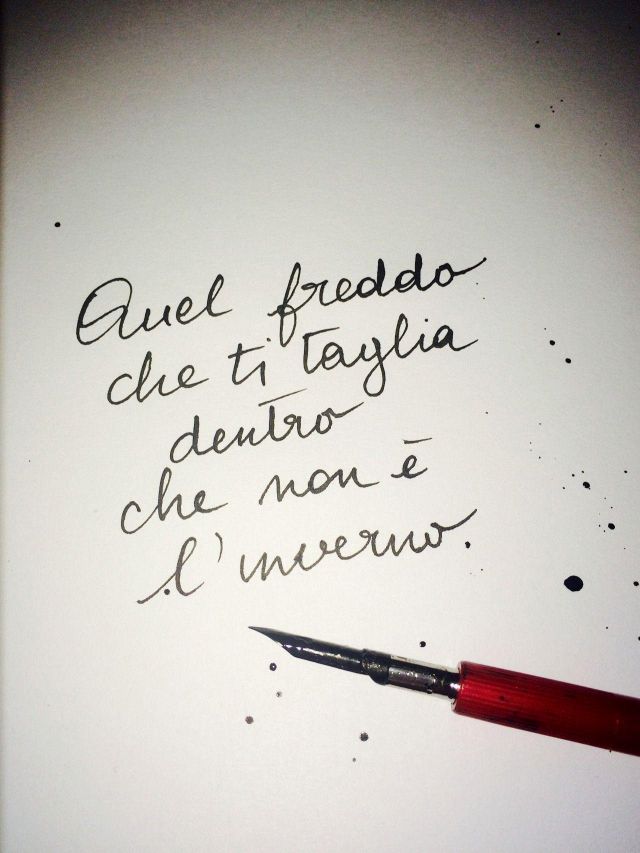 Quel freddo
che ti taglia
dentro
che non è
l'inverno.